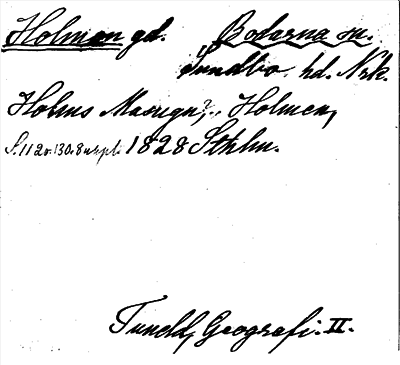 Holmen gd. Bodarna sn.
Sundbo hd. Nrk.
Holms Masugn?, Holmen,
S. 112 o. 130. 8 uppl. 1828 Sthlm.
Tuneld, Geografi. II.